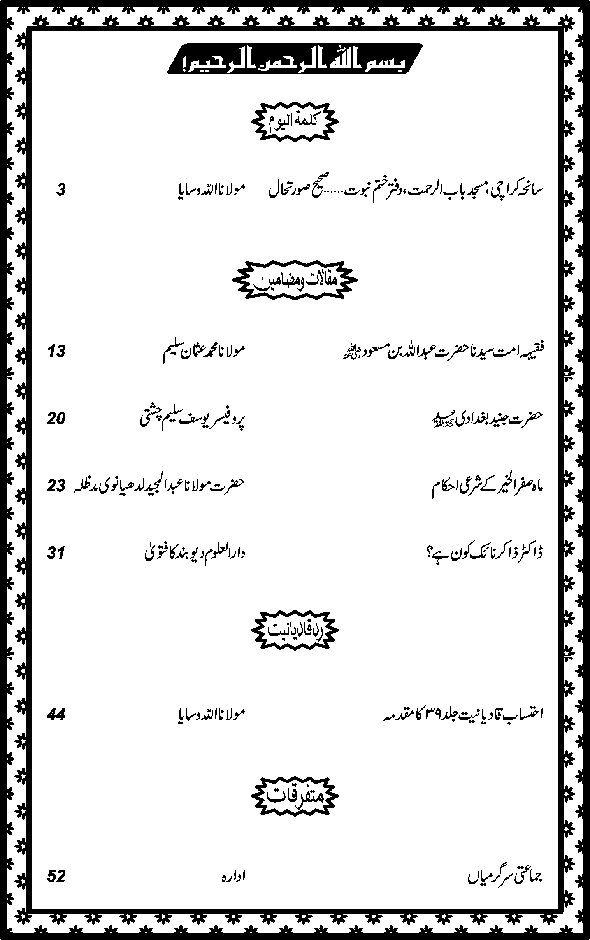 بسم الله الرحمن الرحیم!
کلمۃ الیوم
سانحہ کراچی، مسجد باب الرحمت، دفتر ختم نبوت......صحیح صورتحال مولانا اللہ وسایا 3
مقالات ومضامین
فقیہہ امت سیدنا حضرت عبداللہ بن مسعودؓ مولانا محمد عثمان سلیم 13
حضرت جنید بغدادیؒ پروفیسر یوسف سلیم چشتی 20
ماہ صفر الخیر کے شرعی احکام حضرت مولانا عبدالمجید لدھیانوی مدظلہ 23
ڈاکٹر ذاکر نائک کون ہے؟ دارالعلوم دیوبند کا فتویٰ 31
ردقادیانیت
احتساب قادیانیت جلد ۳۹ کا مقدمہ مولانا اللہ وسایا 44
متفرقات
جماعتی سرگرمیاں ادارہ 52